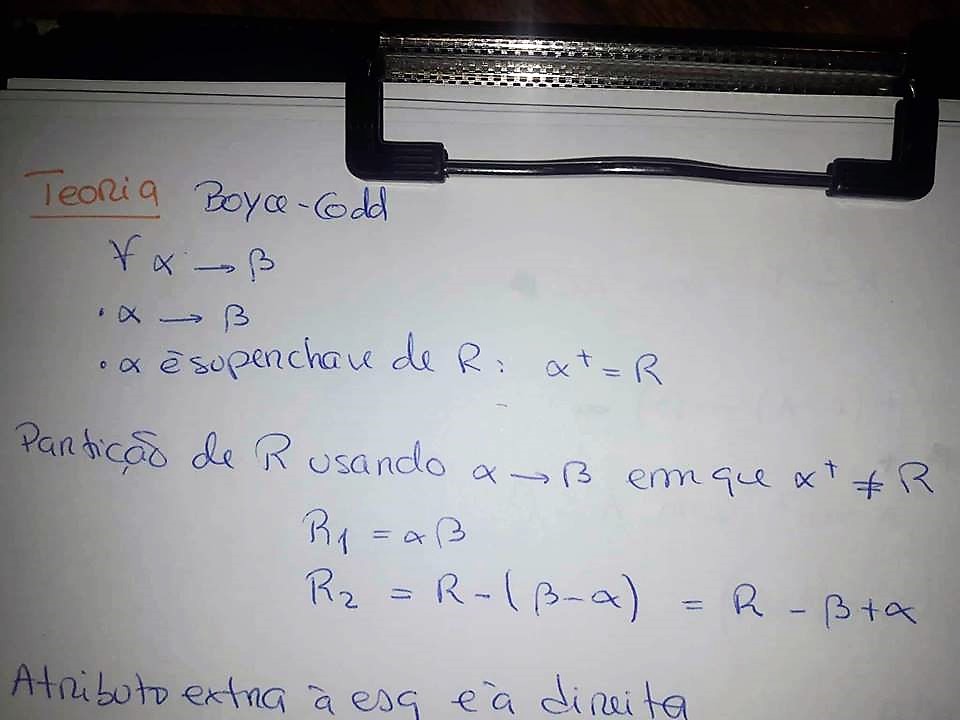 Teoria Boyce-Codd
∀ α → β
· α → β
· α é superchave de R: α⁺ = R
Partição de R usando α → β em que α⁺ ≠ R
R₁ = αβ
R₂ = R - (β - α) = R - β + α
Atributo extra à esq e à direita